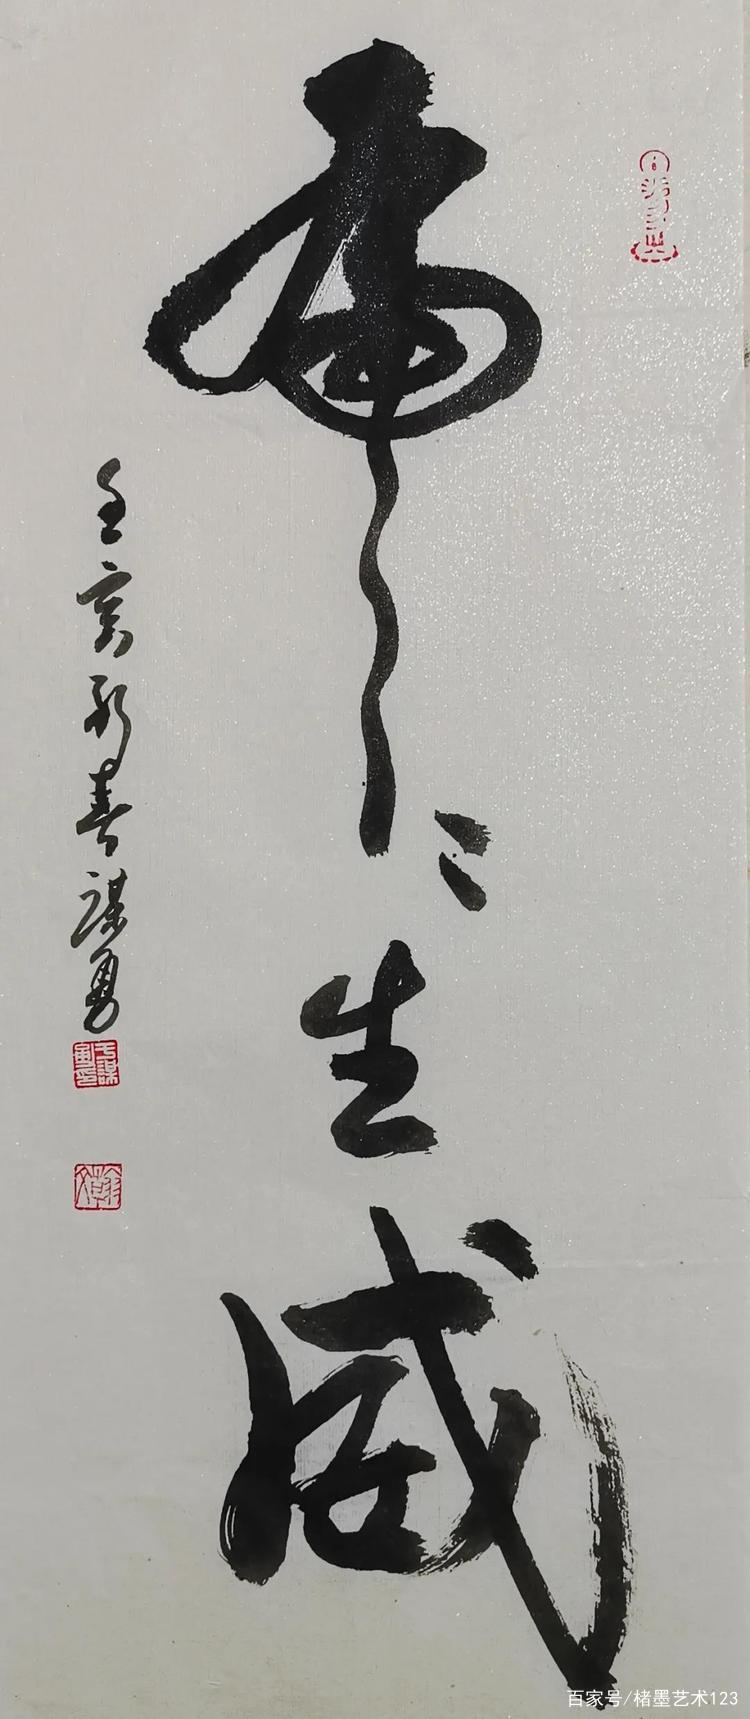 虎々生威
壬寅新春谋勇
百家号/楮墨艺术123